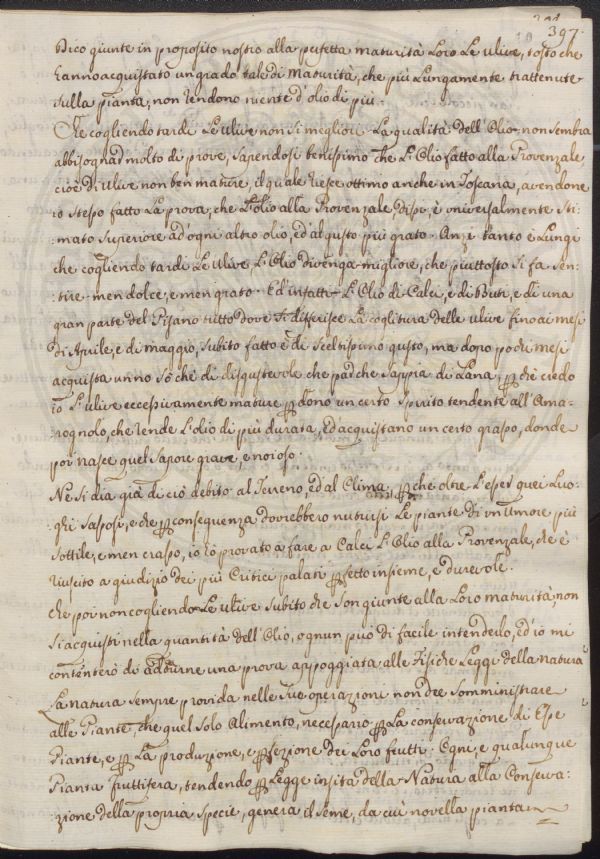 397.
Dico giunte in proposito nostro alla perfetta maturità Loro Le ulive, tosto che
hanno acquistato un grado tale di Maturità, che più Lungamente trattenute
sulla pianta, non rendono niente d'olio di più.
Se cogliendo tardi Le ulive non si megliori La qualità dell'Olio, non sembra
abbisognar molto di prove, sapendosi benissimo che L'Olio fatto alla Provenzale,
cioè di ulive non ben mature, il quale riesce ottimo anche in Toscana, avendone
io stesso fatto La prova, che L'olio alla Provenzale dissi, è universalmente sti-
mato superiore ad'ogni altro olio, ed'al gusto più grato. Anzi tanto è Lungi
che cogliendo tardi Le ulive L'Olio divenga migliore, che piuttosto si fa sen-
tire men dolce, e men grato. Ed'infatti L'Olio di Calci, e di Buti, e di una
gran parte del Pisano tutto dove si differisce La coglitura delle ulive fino ai mesi
di Aprile, e di maggio, subito fatto è di sceltissimo gusto, ma dopo pochi mesi
acquista un no sò che di disgustevole che par che sappia di Lana, perchè credo
io L'ulive eccessivamente mature perdono un certo spirito tendente all'Ama-
rognolo, che rende L'olio di più durata, ed acquistano un certo grasso, donde
poi nasce quel sapore grave, e noioso.
Nè si dia già di ciò debito al Terreno, ed'al Clima, perchè oltre L'esser quei Luo-
ghi sassosi, e che per conseguenza dovrebbero nutrirsi Le piante di un umore più
sottile, e men crasso, io hò provato a fare a Calci L'Olio alla Provenzale, che è
riuscito a giudizio dei più Critici palati perfetto insieme, e durevole.
Che poi non cogliendo Le ulive subito che son giunte alla Loro maturità, non
si acquisti nella quantità dell'Olio, ognun può di facile intenderlo, ed'io mi
contenterò di addurne una prova appoggiata alle Fisiche Leggi della natura
La natura sempre provida nelle sue operazioni non dee somministrare
alle Piante, che quel solo Alimento, necessario per La conservazione di Esse
Piante, e per La produzione, e perfezione dei Loro frutti. Ogni, e qualunque
Pianta fruttifera, tendendo per Legge insita della Natura alla Conserva-
zione della propria specie, genera il seme, da cui novella pianta